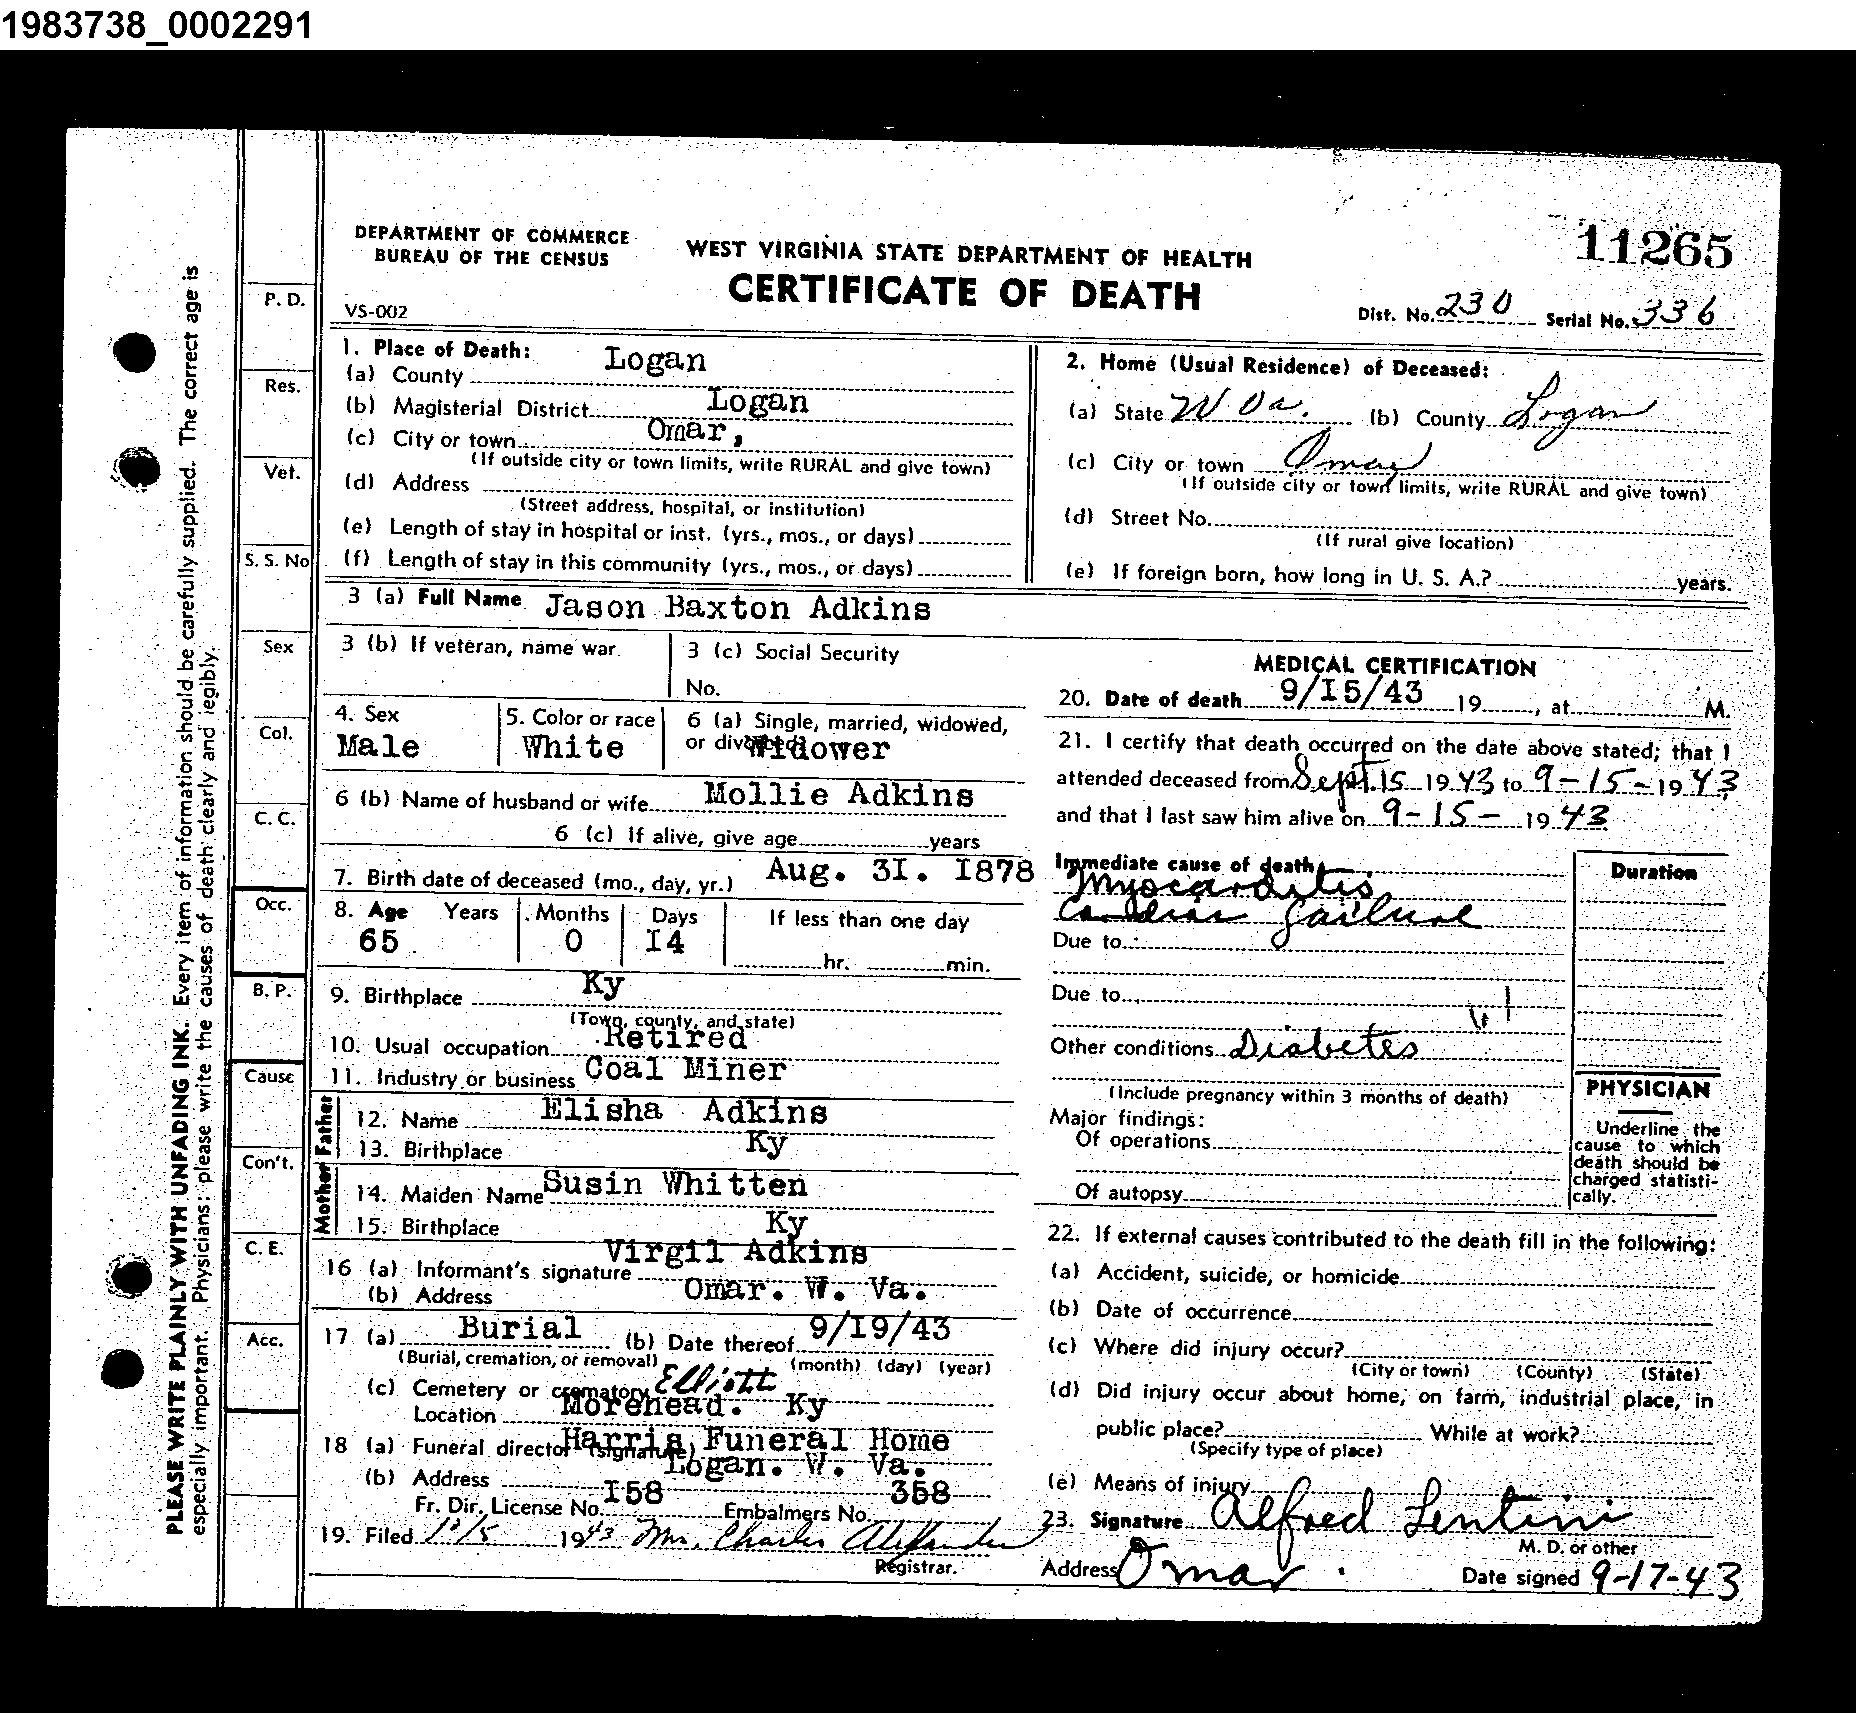 1983738_0002291
DEPARTMENT OF COMMERCE
BUREAU OF THE CENSUS
WEST VIRGINIA STATE DEPARTMENT OF HEALTH
CERTIFICATE OF DEATH
11265
VS-002
Dist. No. 230 Serial No. 336
PLEASE WRITE PLAINLY WITH UNFADING INK. Every item of information should be carefully supplied. The correct age is
especially important. Physicians: please write the causes of death clearly and legibly.
P. D.
Res.
Vet.
S. S. No
Sex
Col.
C. C.
Occ.
B. P.
Cause
Con't.
C. E.
Acc.
1. Place of Death:
(a) County Logan
(b) Magisterial District Logan
(c) City or town Omar,
(If outside city or town limits, write RURAL and give town)
(d) Address
(Street address, hospital, or institution)
(e) Length of stay in hospital or inst. (yrs., mos., or days)
(f) Length of stay in this community (yrs., mos., or days)
2. Home (Usual Residence) of Deceased:
(a) State W Va. (b) County Logan
(c) City or town Omar
(If outside city or town limits, write RURAL and give town)
(d) Street No.
(If rural give location)
(e) If foreign born, how long in U. S. A.? years.
3 (a) Full Name Jason Baxton Adkins
3 (b) If veteran, name war.
3 (c) Social Security
No.
4. Sex
Male
5. Color or race
White
6 (a) Single, married, widowed,
or divorced Widower
6 (b) Name of husband or wife Mollie Adkins
6 (c) If alive, give age years
7. Birth date of deceased (mo., day, yr.) Aug. 3I. I878
8. Age Years Months Days If less than one day
65 0 I4
hr. min.
9. Birthplace Ky
(Town, county, and state)
10. Usual occupation Retired
11. Industry or business Coal Miner
Father
12. Name Elisha Adkins
13. Birthplace Ky
Mother
14. Maiden Name Susin Whitten
15. Birthplace Ky
16 (a) Informant's signature Virgil Adkins
(b) Address Omar. W. Va.
17 (a) Burial (b) Date thereof 9/I9/43
(Burial, cremation, or removal) (month) (day) (year)
(c) Cemetery or crematory Elliott
Location Morehead. Ky
18 (a) Funeral director (signature) Harris Funeral Home
(b) Address Logan. W. Va.
Fr. Dir. License No. I58 Embalmers No. 358
19. Filed 10/5 1943 Mrs. Charles Alexander
Registrar.
MEDICAL CERTIFICATION
20. Date of death 9/I5/43 19 , at M.
21. I certify that death occurred on the date above stated; that I
attended deceased from Sept. 15 1943 to 9-15-1943
and that I last saw him alive on 9-15- 1943
Immediate cause of death
Myocarditis
Cardiac failure
Due to
Due to
Other conditions Diabetes
(Include pregnancy within 3 months of death)
Major findings:
Of operations
Of autopsy
Duration
PHYSICIAN
Underline the
cause to which
death should be
charged statisti-
cally.
22. If external causes contributed to the death fill in the following:
(a) Accident, suicide, or homicide
(b) Date of occurrence
(c) Where did injury occur?
(City or town) (County) (State)
(d) Did injury occur about home, on farm, industrial place, in
public place? While at work?
(Specify type of place)
(e) Means of injury
23. Signature Alfred Lentini
M. D. or other
Address Omar. Date signed 9-17-43